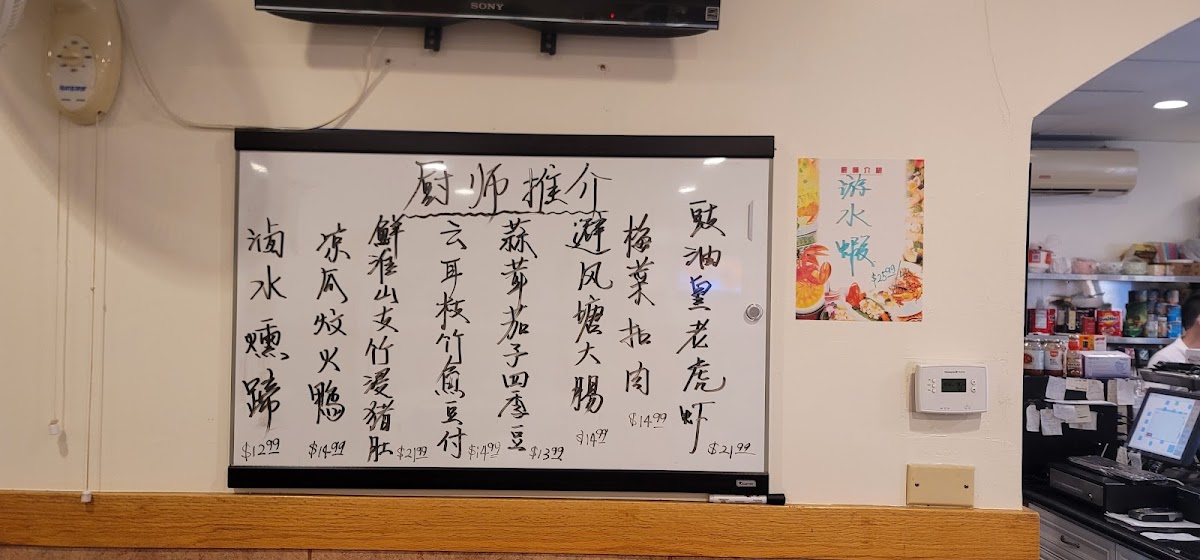 SONY
厨师推介
豉油皇老虎虾
$21.99
梅菜扣肉
$14.99
避风塘大腸
$14.99
蒜茸茄子四季豆
$13.99
云耳枝竹魚豆付
$14.99
鲜淮山支竹浸猪肚
$21.99
凉瓜炆火鴨
$14.99
滷水燻蹄
$12.99
游水蝦
$25.99